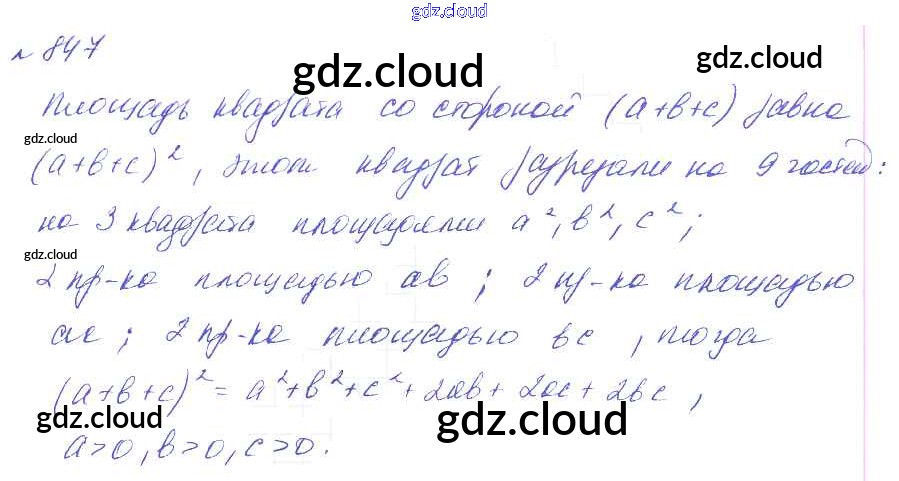 gdz.cloud
№ 847
gdz.cloud
gdz.cloud
Площадь квадрата со стороной (a+b+c) равна
gdz.cloud
(a+b+c)², этот квадрат разрезали на 9 частей:
на 3 квадрата площадями a², b², c²;
gdz.cloud
2 пр-ка площадью ab; 2 пр-ка площадью
ac; 2 пр-ка площадью bc, тогда
(a+b+c)² = a²+b²+c²+2ab+2ac+2bc,
gdz.cloud
gdz.cloud
a>0, b>0, c>0.